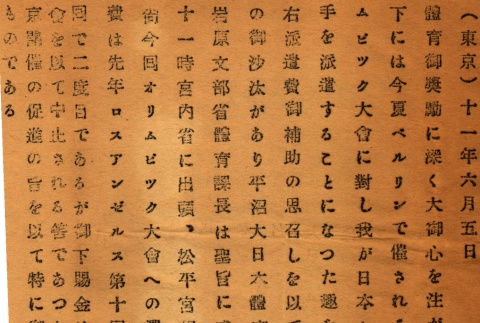 （東京）十一年六月五日
體育御奬勵に深く大御心を注が
下には今夏ベルリンで催される
ムピツク大會に對し我が日本
手を派遣することになつた趣を
右派遣費御補助の思召しを以て
の御沙汰があり平沼大日本體
岩原文部省體育課長は聖旨に
十一時宮内省に出頭、松平宮
尙今回オリムピツク大會への
費は先年ロスアンゼルス第十
回で二度目であるが御下賜金は
會を以て中止される筈であつ
京開催の促進の旨を以て特に
ものである